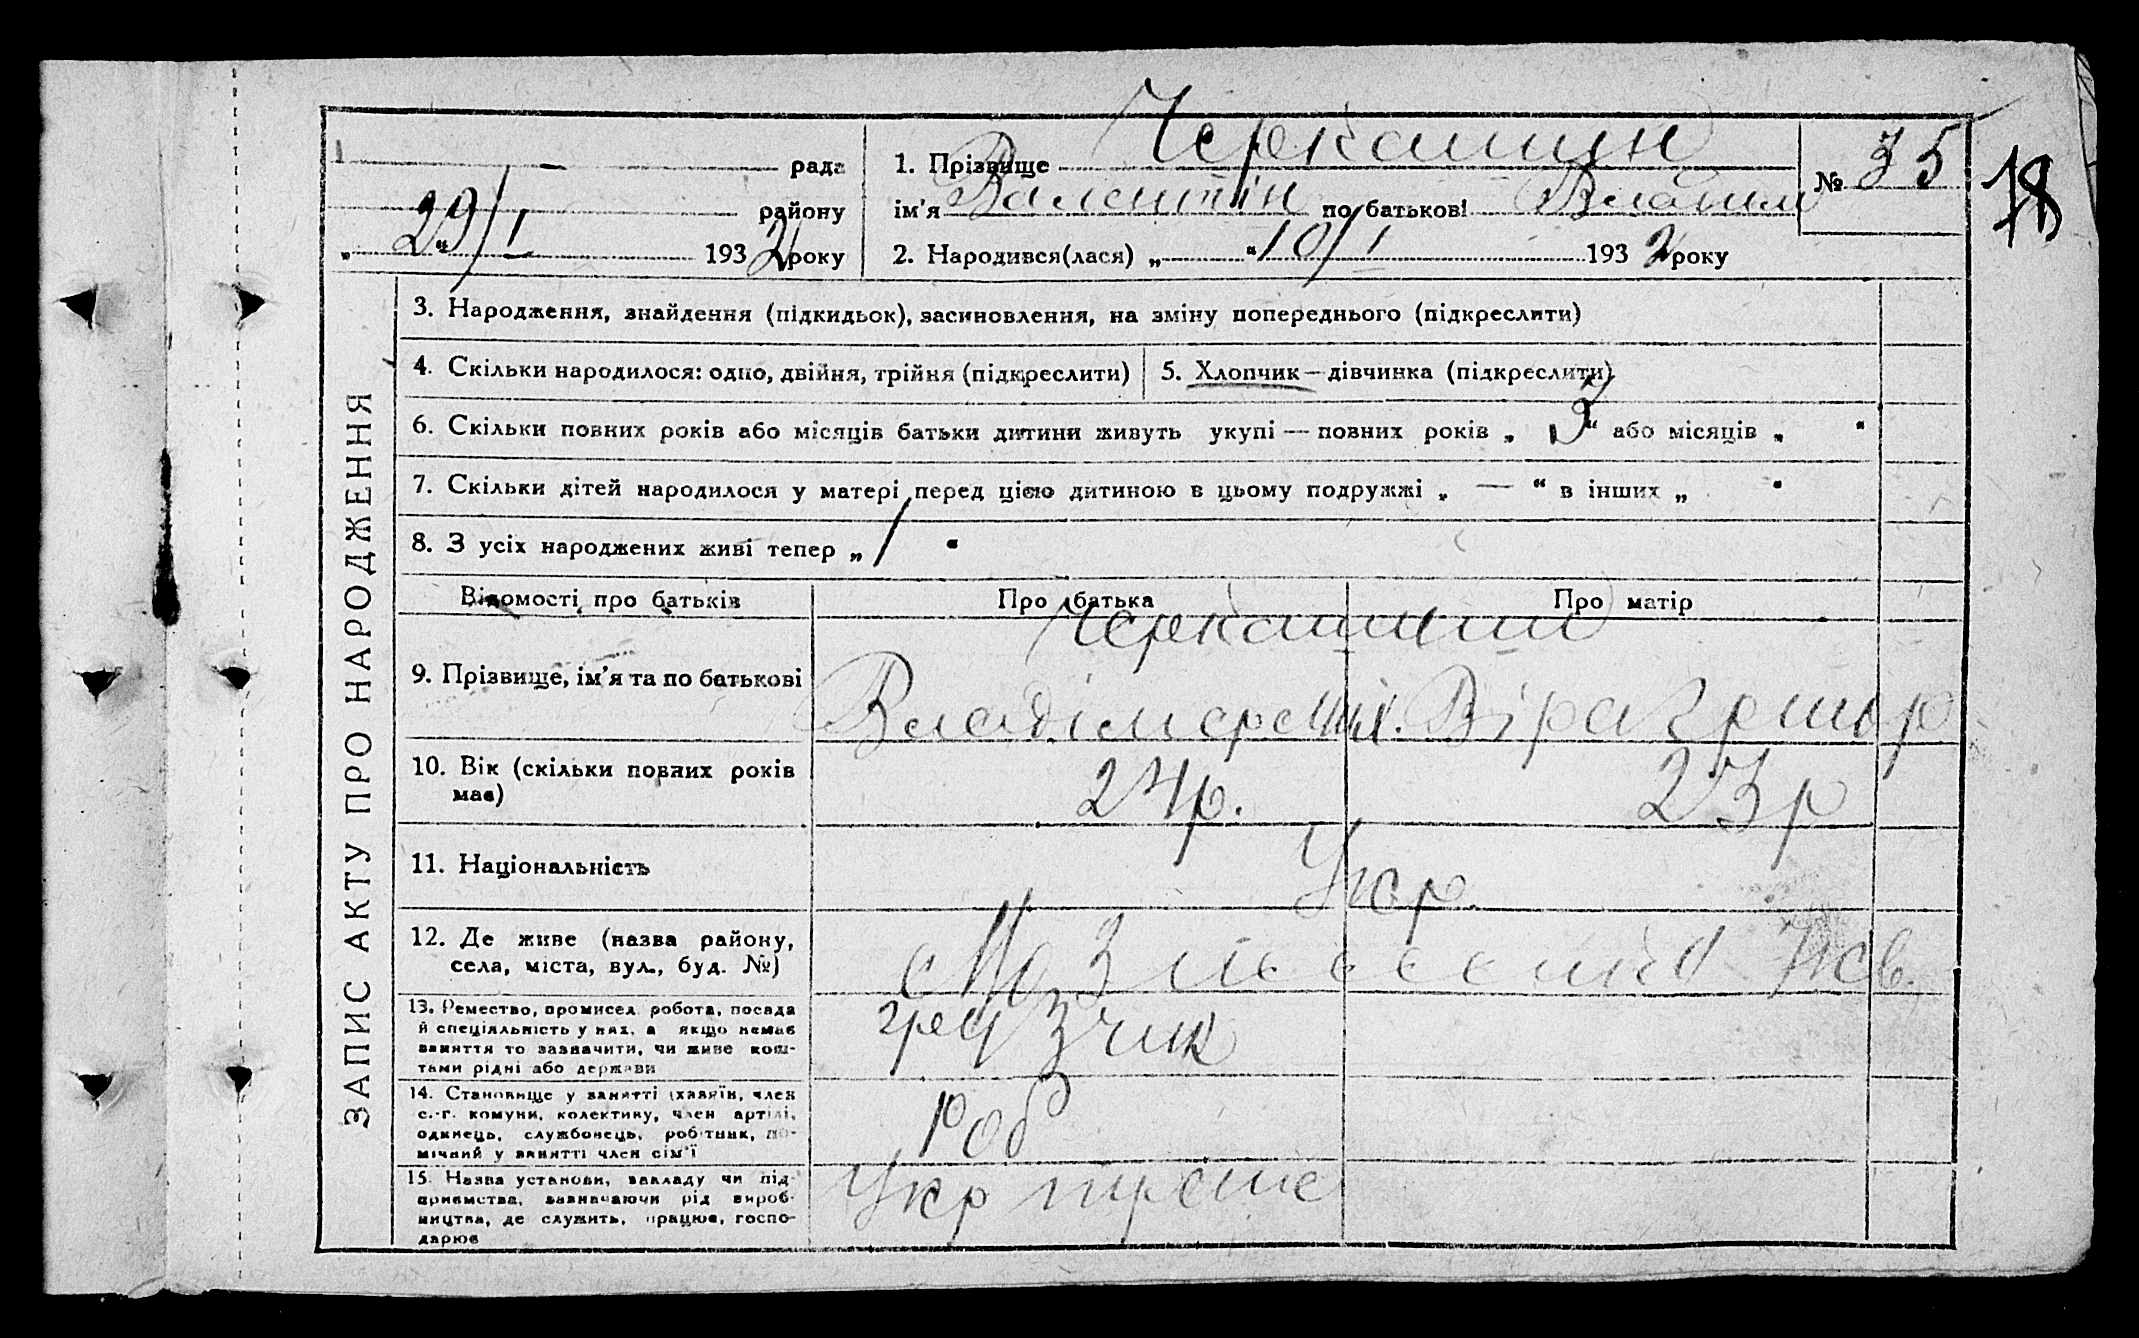 рада
району
29/I 1932 року
1. Прізвище Черкашин
ім'я Валентін по батькові Владим
2. Народився(лася) „ “ 10/I 1932 року
№ 35
18
ЗАПИС АКТУ ПРО НАРОДЖЕННЯ
3. Народження, знайдення (підкидьок), засиновлення, на зміну попереднього (підкреслити)
4. Скільки народилося: одно, двійня, трійня (підкреслити) 5. Хлопчик — дівчинка (підкреслити)
6. Скільки повних років або місяців батьки дитини живуть укупі — повних років „ 3 “ або місяців „ “
7. Скільки дітей народилося у матері перед цією дитиною в цьому подружжі „ — “ в інших „ “
8. З усіх народжених живі тепер „ 1 “
Відомості про батьків Про батька Про матір
Черкашини
9. Прізвище, ім'я та по батькові Владімер Віра Григор
10. Вік (скільки повних років 24р. 23р
має)
11. Національність Укр.
12. Де живе (назва району,
села, міста, вул., буд. №)
13. Ремество, промисел робота, посада
й спеціяльність у них, а якщо немає
заняття то зазначити, чи живе кош-
тами рідні або держави
14. Становище у занятті (хазяїн, член Роб
с.-г. комуни, колективу, член артілі,
одинець, службовець, робітник, по-
мічний у занятті член сім'ї
15. Назва установи, закладу чи під- Укр
приємства, зазначаючи рід вироб-
ництва, де служить, працює, госпо-
дарює